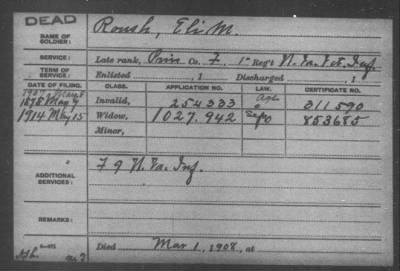 DEAD
NAME OF SOLDIER: Roush, Eli M.
SERVICE: Late rank, Priv Co. F, 1" Reg't W. Va. Vet. Inf.
TERM OF SERVICE: Enlisted , 1 Discharged , 1
DATE OF FILING. CLASS. APPLICATION NO. LAW. CERTIFICATE NO.
1878 May 7 Invalid, 254333 311590
1914 May 15 Widow, 1027.942 853685
Minor,
ADDITIONAL SERVICES: F 9 W. Va. Inf.
REMARKS:
Died Mar 1, 1908, at